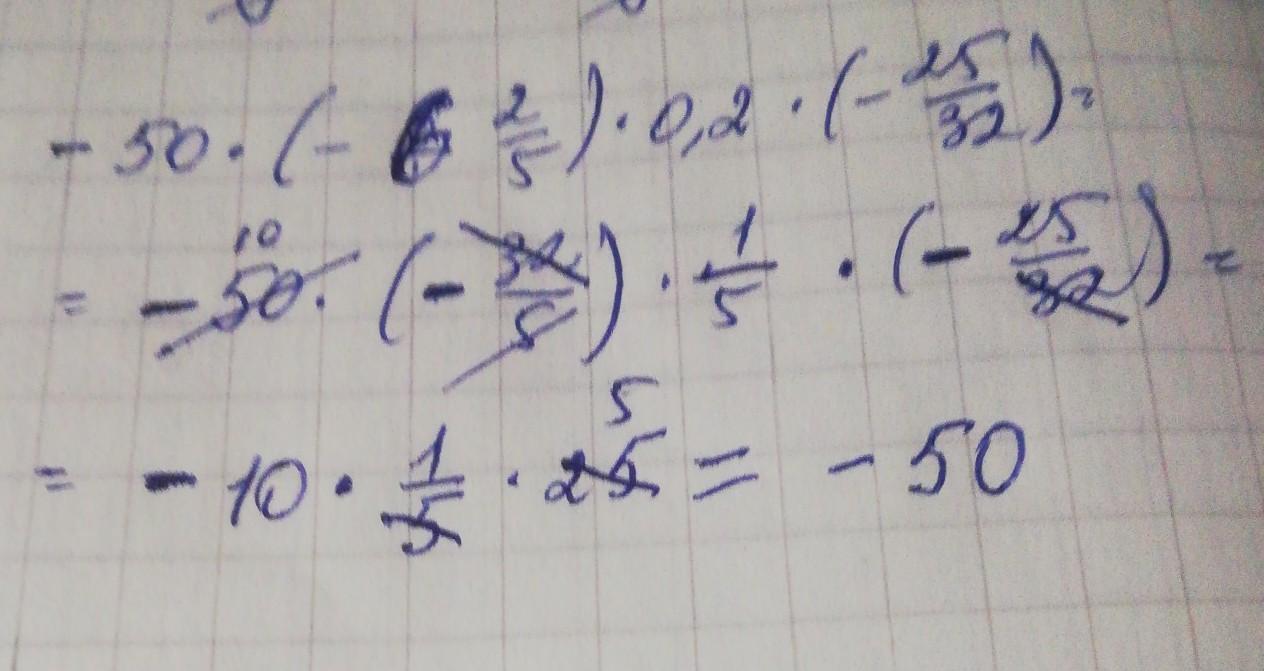 - 50 · (- 6 2/5) · 0,2 · (- 25/32) =
= - 50 · (- 32/5) · 1/5 · (- 25/32) =
= - 10 · 1/5 · 25 = - 50
10
5